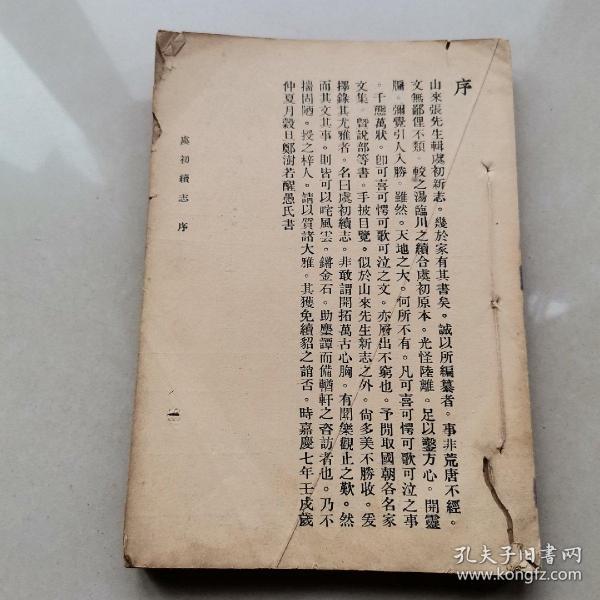 序
山來張先生輯虞初新志。幾於家有其書矣。誠以所編纂者。事非荒唐不經。
文無鄙俚不類。較之湯臨川之續合虞初原本。光怪陸離。足以鑿方心。開靈
牖。彌覺引人入勝。雖然。天地之大。何所不有。凡可喜可愕可歌可泣之事
。千態萬狀。卽可喜可愕可歌可泣之文。亦層出不窮也。予閒取國朝各名家
文集。曁說部等書。手披目覽。似於山來先生新志之外。尙多美不勝收。爰
擇錄其尤雅者。名曰虞初續志。非敢謂開拓萬古心胸。有聞樂觀止之歎。然
而其文其事。則皆可以咤風雲。鏘金石。助麈譚而備輶軒之咨訪者也。乃不
揣固陋。授之梓人。請以質諸大雅。其獲免續貂之誚否。時嘉慶七年壬戌歲
仲夏月穀旦鄭澍若醒愚氏書
虞初續志 序
一
孔夫子旧书网
www.kongfz.com